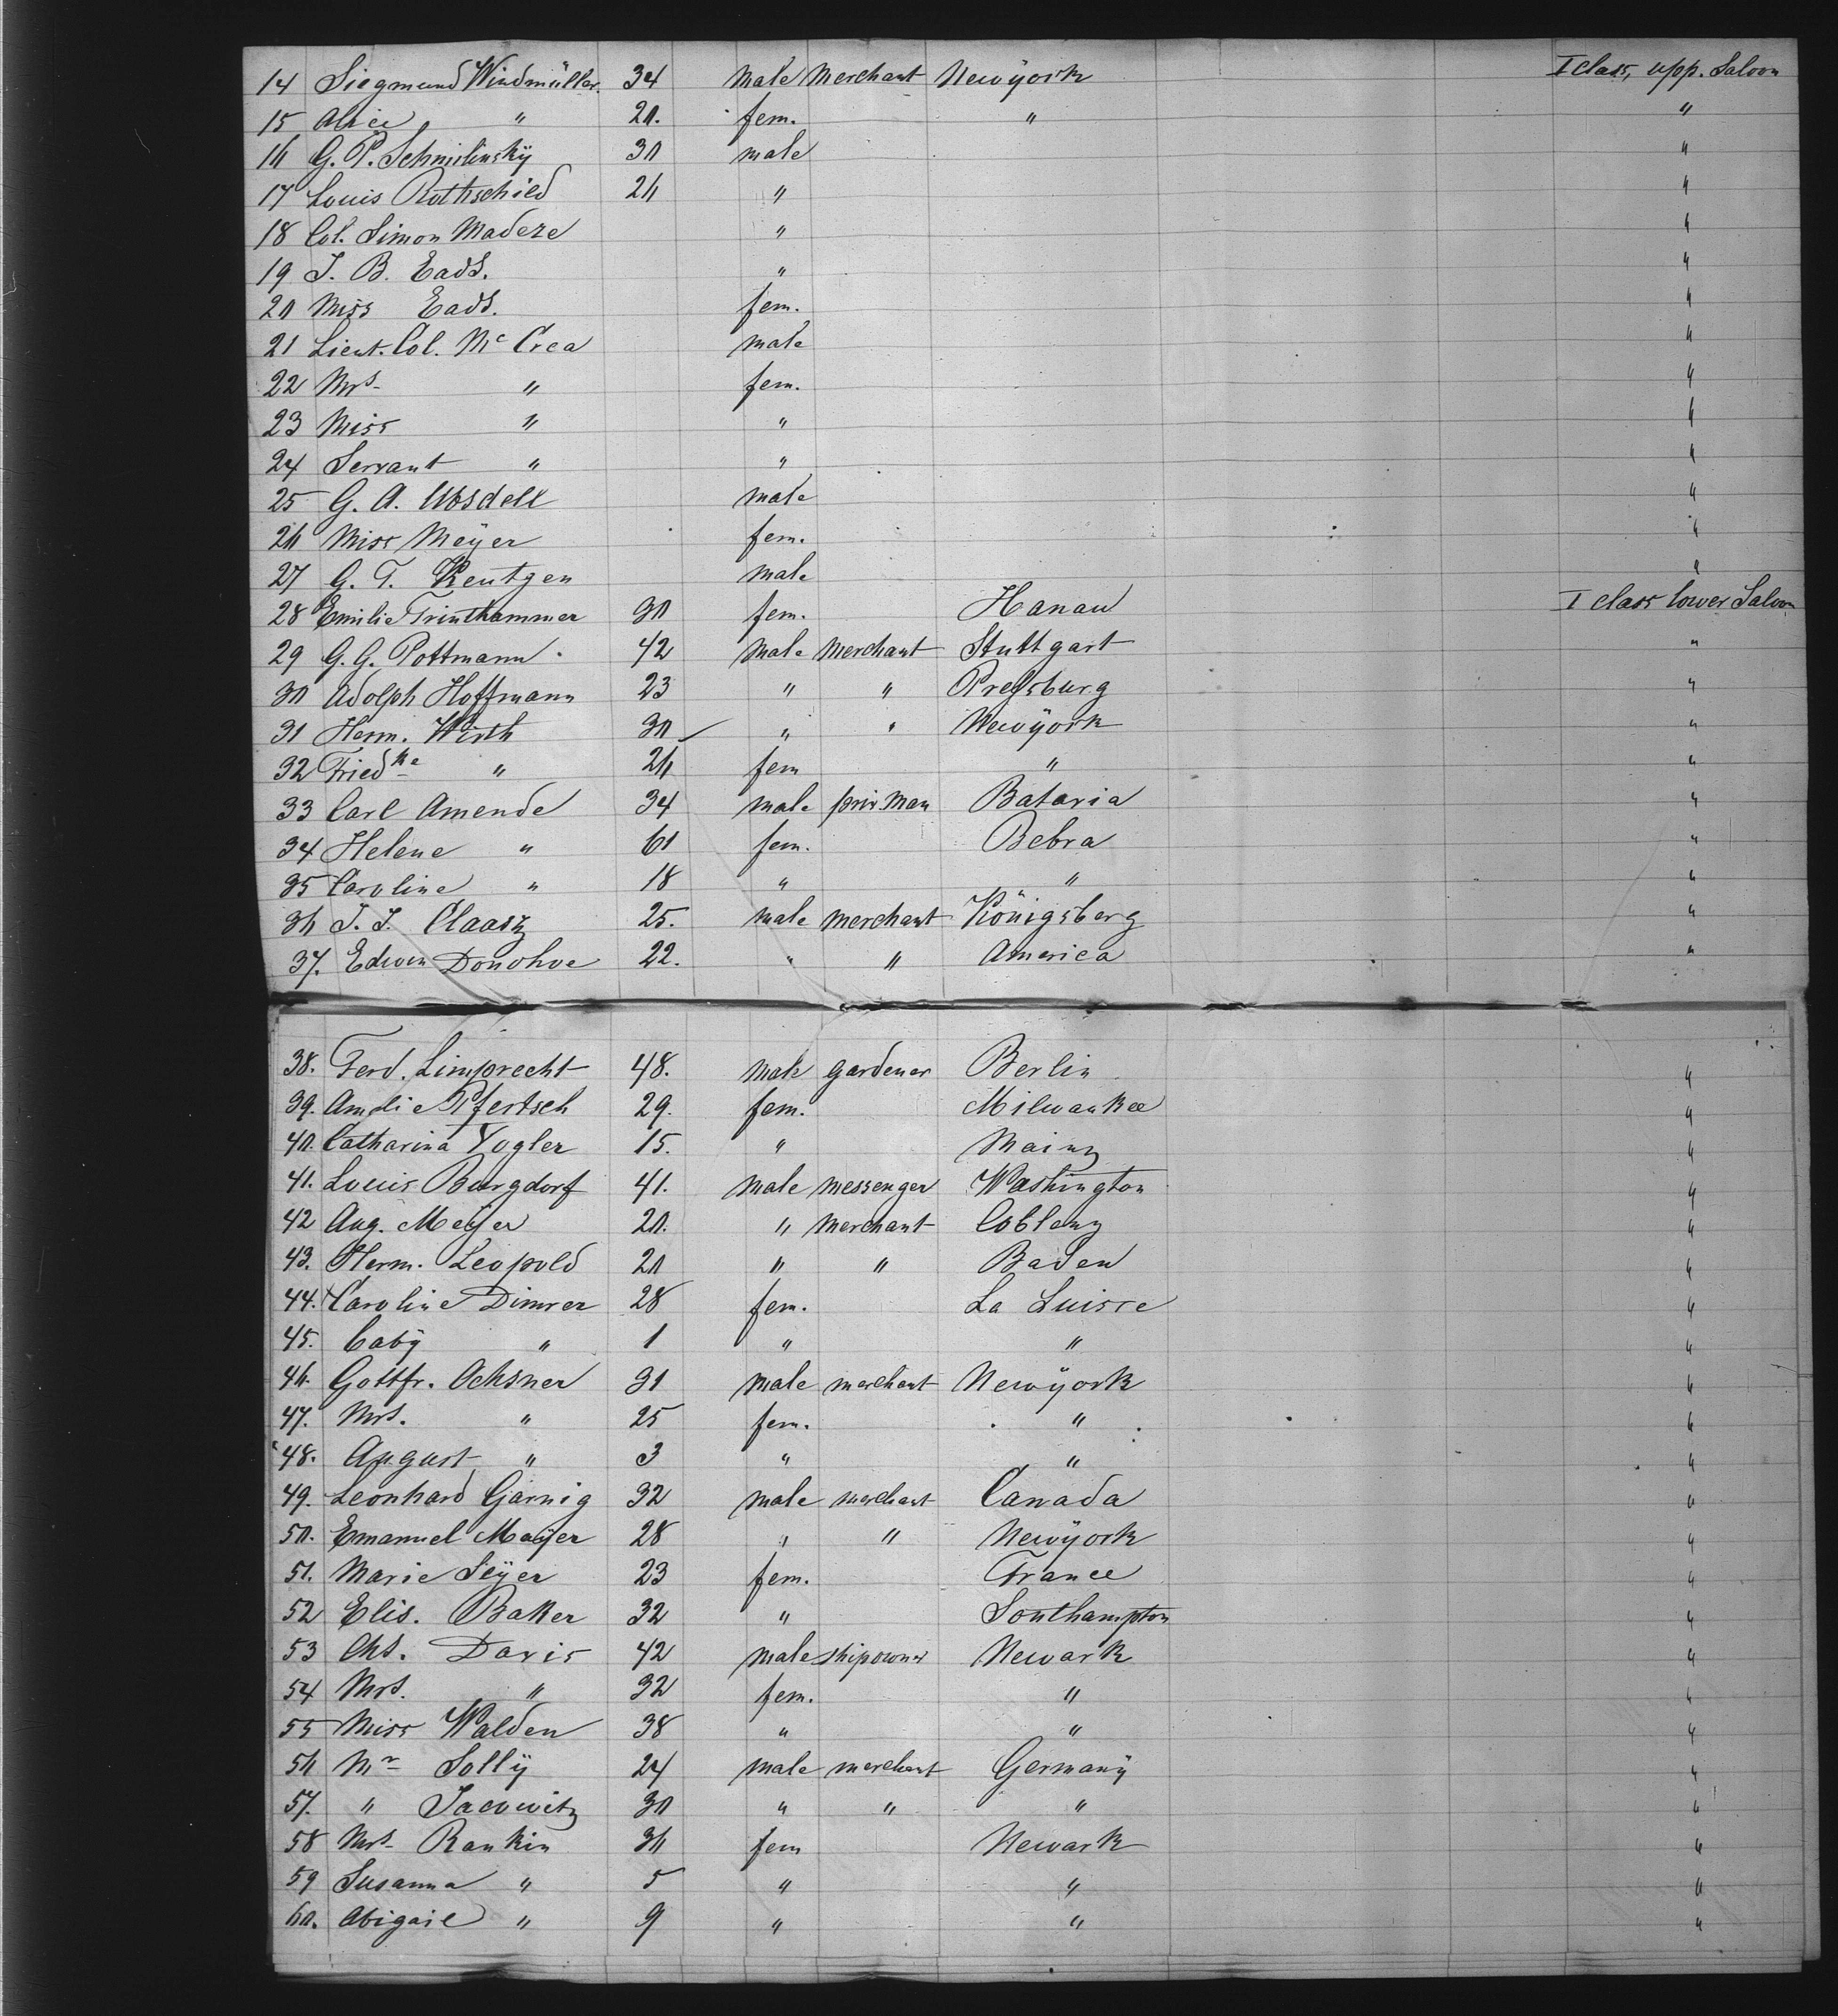 14 Siegmund Windmüller. 34 male Merchant Newÿork I class, upp. Saloon
15 Alice " 20. fem. " "
16 G. P. Schmilinskÿ 30 male "
17 Louis Rothschild 26 " "
18 Col. Simon Madeze " "
19 J. B. Eads. " "
20 Miss Eads. fem. "
21 Lieut. Col. Mc Crea male "
22 Mrs " fem. "
23 Miss " " "
24 Servant " " "
25 G. A. Ubsdell male "
26 Miss Meÿer fem. "
27 G. T. Kentgen male "
28 Emilie Trinthammer 30 fem. Hanau I class lower Saloon
29 G. G. Pottmann 42 male Merchant Stuttgart "
30 Adolph Hoffmann 23 " " Pressburg "
31 Herm. Wirth 30 " " Newÿork "
32 Friedke " 26 fem " "
33 Carl Amende 34 male priv. Man Batavia "
34 Helene " 61 fem. Bebra "
35 Caroline " 18 " " "
36 J. J. Claasz 25. male merchant Königsberg "
37. Edwin Donohoe 22. " " America "
38. Ferd. Limprecht 48. male gardener Berlin "
39. Amelie Pfertsch 29. fem. Milwaukee "
40. Catharina Vogler 15. " Mainz "
41. Louis Burgdorf 41. male messenger Washington "
42 Aug. Meÿer 20. " Merchant Coblenz "
43. Herm. Leopold 20 " " Baden "
44. Caroline 28 fem. La Suisse "
45. baby " 1 " " "
46. Gottfr. Ochsner 31 male merchant Newÿork "
47. Mrs. " 25 fem. " "
48. August " 3 " " "
49. Leonhard Garnig 32 male merchant Canada "
50. Emanuel Maÿer 28 " " Newÿork "
51. Marie Seÿer 23 fem. France "
52 Elis. Baker 32 " Southampton "
53 Chs. Davis 42 male shipowner Newark "
54 Mrs. " 32 fem. " "
55 Miss Walden 38 " " "
56 Mr Sollÿ 24 male merchant Germanÿ "
57. " Jacowitz 30 " " " "
58 Mrs Rankin 36 fem Newark "
59 Susanna " 5 " " "
60. Abigail " 9 " " "